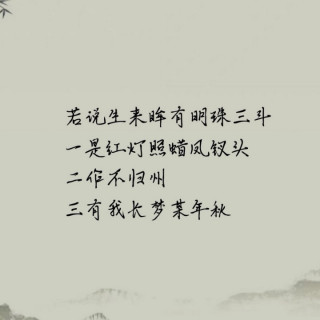 若说生来眸有明珠三斗
一是红灯照蜡凤钗头
二作不归州
三有我长梦某年秋